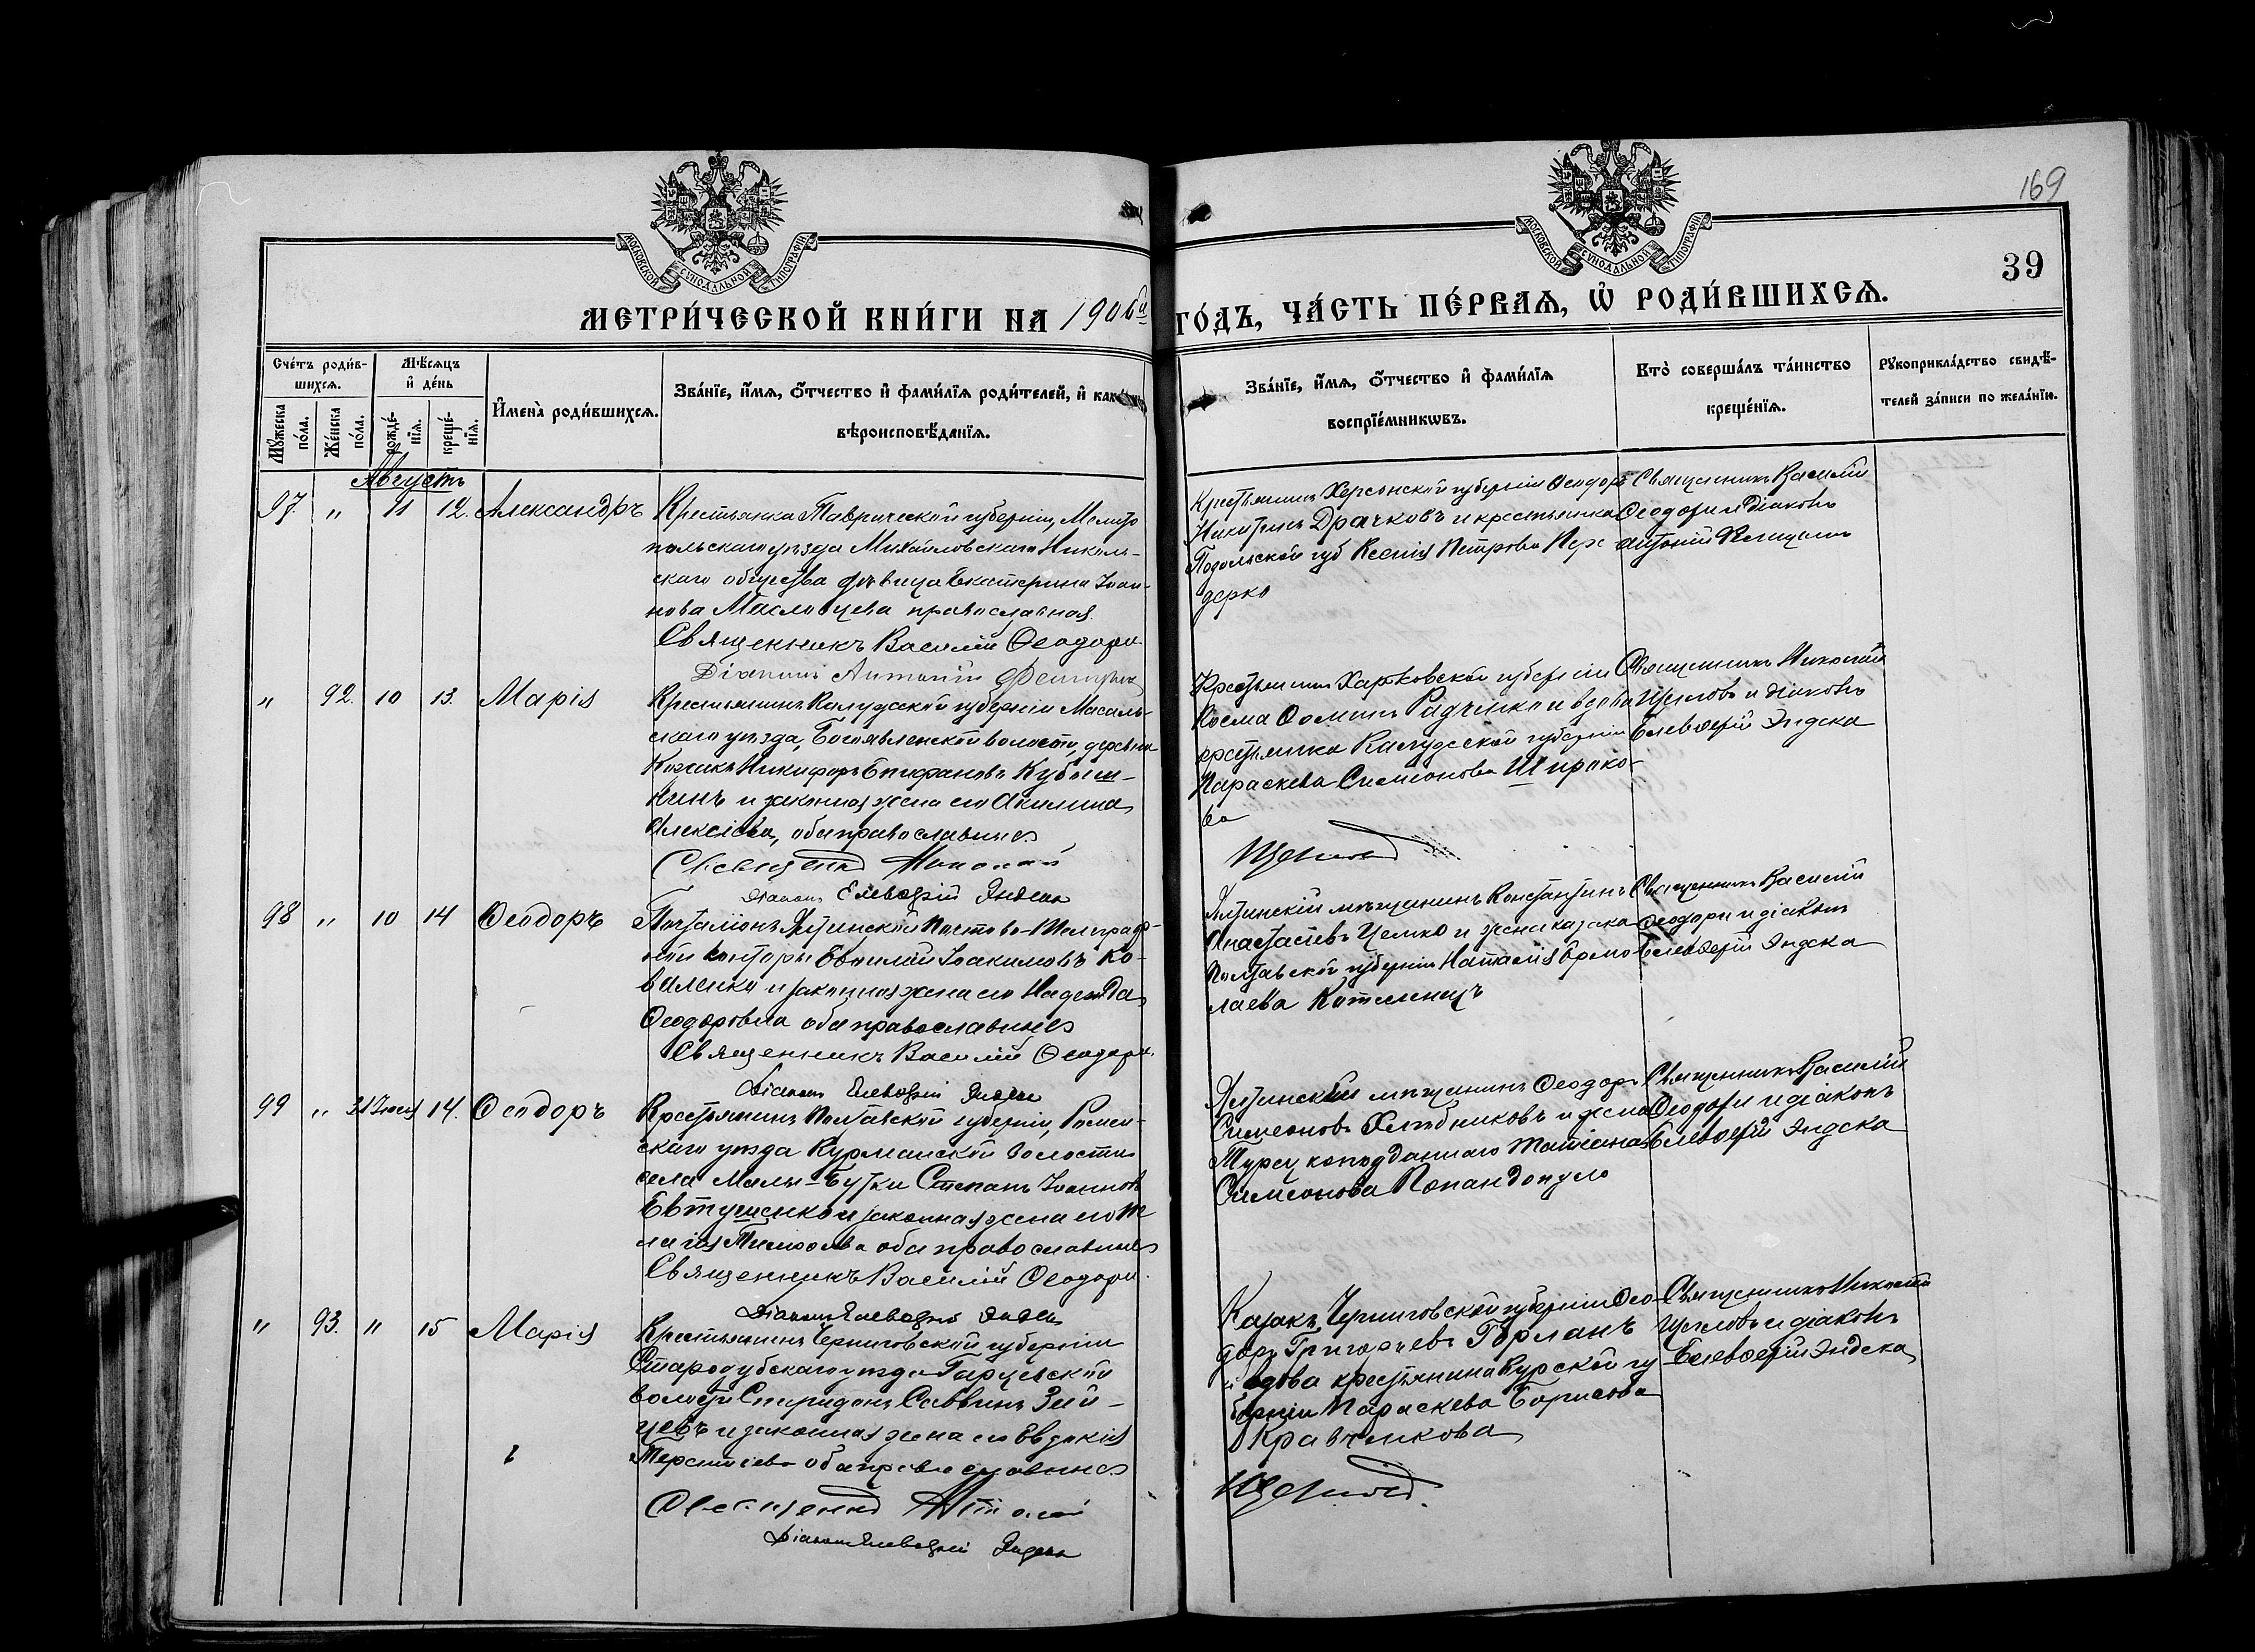 169
39
МОСКОВСКОЙ СѴНОДАЛЬНОЙ ТИПОГРАФІИ
МОСКОВСКОЙ СѴНОДАЛЬНОЙ ТИПОГРАФІИ
МЕТРИ́ЧЕСКОЙ КНИ́ГИ НА 1906й
ГО́ДЪ, ЧА́СТЬ ПЕ́РВАѦ, Ѡ҆ РОДИ́ВШИХСѦ.
Сче́тъ роди́в-
шихсѧ.
Мꙋ́жеска по́ла.
Же́нска по́ла.
Мѣ́сѧцъ
и҆ де́нь
рожде́-
нїѧ.
креще́-
нїѧ.
И҆мена̀ роди́вшихсѧ.
Зва́нїе, и҆́мѧ, ѻ҆́тчество и҆ фами́лїѧ роди́телей, и҆ как
вѣроисповѣ́данїѧ.
Зва́нїе, и҆́мѧ, ѻ҆́тчество и҆ фами́лїѧ
воспрїе́мникѡвъ.
Кто̀ соверша́лъ та́инство
креще́нїѧ.
Рꙋкоприкла́дство свидѣ́-
телей за́писи по жела́нїю.
Августъ
97 " 11 12. Александръ
Крестьянка Таврической губерніи, Мелито
польскаго уѣзда Михайловскаго Николь-
скаго общества дѣвица Екатерина Іоан-
нова Масловцева православная.
Священникъ Василій Ѳеодори
Діаконъ Антоній
Крестьянинъ Херсонской губерніи Ѳеодоръ
Никитинъ Драчковъ и крестьянка
Подольской губ Ксенія Петрова Пере
дерко
Священникъ Василій
Ѳеодори и діаконъ
Антоній
" 92. 10 13. Марія
Крестьянинъ Калужской губерніи Масаль-
скаго уѣзда, Богоявленской волости, деревни
Никифоръ Епифановъ Кубыш-
кинъ и законная жена его Акилина
Алексіева, оба православные
Священникъ Николай
Діаконъ Елевѳерій Эндека
Крестьянинъ Харьковской губерніи
Косма Ѳоминъ Радченко и вдова
крестьянка Калужской губерніи
Параскева Симеонова Широко-
ва
Щегловъ
Священникъ Николай
Щегловъ и діаконъ
Елевѳерій Эндека
98 " 10 14 Ѳеодоръ
Почталіонъ Ялтинской Почтово-Телеграф-
ной конторы Евфимій Іоакимовъ Ко-
валенко и законная жена его Надежда
Ѳеодоровна оба православные
Священникъ Василій Ѳеодори.
Діаконъ Елевѳерій Эндека
Ялтинскій мѣщанинъ Константинъ
Анастасіевъ Цемко и жена казака
Полтавской губерніи Наталія Ермо
лаева Котеленецъ
Священникъ Василій
Ѳеодори и діаконъ
Елевѳерій Эндека
99 " 31 Іюля 14. Ѳеодоръ
Крестьянинъ Полтавской губерніи, Ромен-
скаго уѣзда Курманской волости
села Малы-Бутки Степанъ Іоанновъ
Евтушенко и законная жена его
Тимофеева оба православные
Священникъ Василій Ѳеодори.
Діаконъ Елевѳерій Эндека
Ялтинскій мѣщанинъ Ѳеодоръ
Симеоновъ Хлѣбниковъ и жена
Турецкоподданнаго Татіана
Симеонова Попандопуло
Священникъ Василій
Ѳеодори и діаконъ
Елевѳерій Эндека
" 93. " 15 Марія
Крестьянинъ Черниговской губерніи
Стародубскаго уѣзда Гарцевской
волости Спиридонъ Саввинъ Зай-
цевъ и законная жена его Евдокія
Терентіева оба православные
Священникъ Николай
Діаконъ Елевѳерій Эндека
Казакъ Черниговской губерніи Ѳео-
доръ Григорьевъ Горланъ
и вдова крестьянина Курской гу
берніи Параскева Борисова
Кравченкова
Щегловъ.
Священникъ Николай
Щегловъ и діаконъ
Елевѳерій Эндека